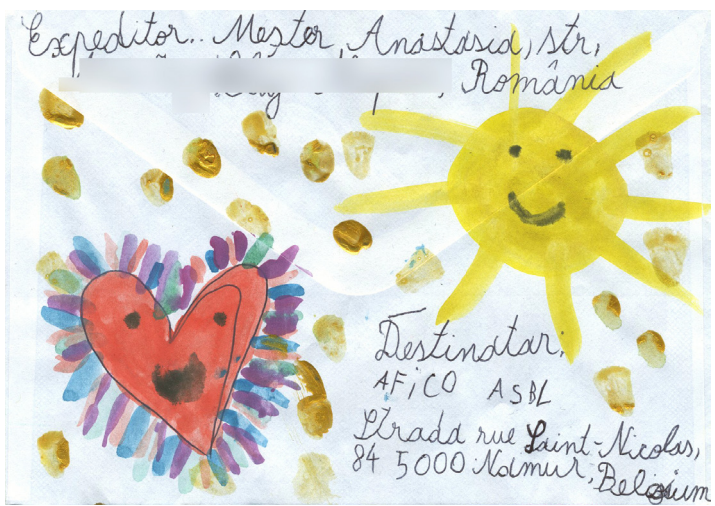 Expeditor.. Mester, Anastasia, str,
, România
Destinatar,
AFiCO ASBL
Strada rue Saint-Nicolas,
84 5000 Namur, Belgium